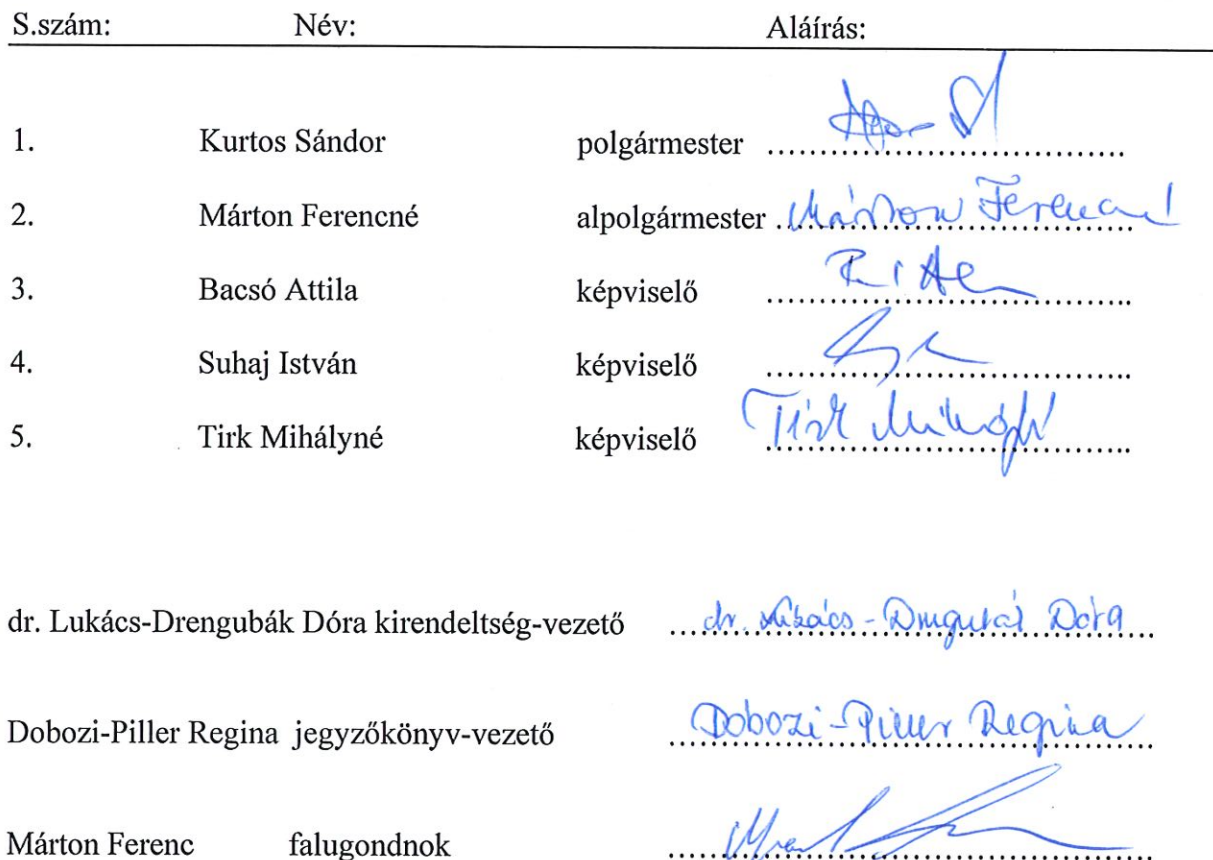 S.szám: Név: Aláírás:
1. Kurtos Sándor polgármester ....................................
2. Márton Ferencné alpolgármester Márton Ferencné
3. Bacsó Attila képviselő ....................................
4. Suhaj István képviselő ....................................
5. Tirk Mihályné képviselő Tirk Mihályné
dr. Lukács-Drengubák Dóra kirendeltség-vezető dr. Lukács-Drengubák Dóra
Dobozi-Piller Regina jegyzőkönyv-vezető Dobozi-Piller Regina
Márton Ferenc falugondnok ....................................